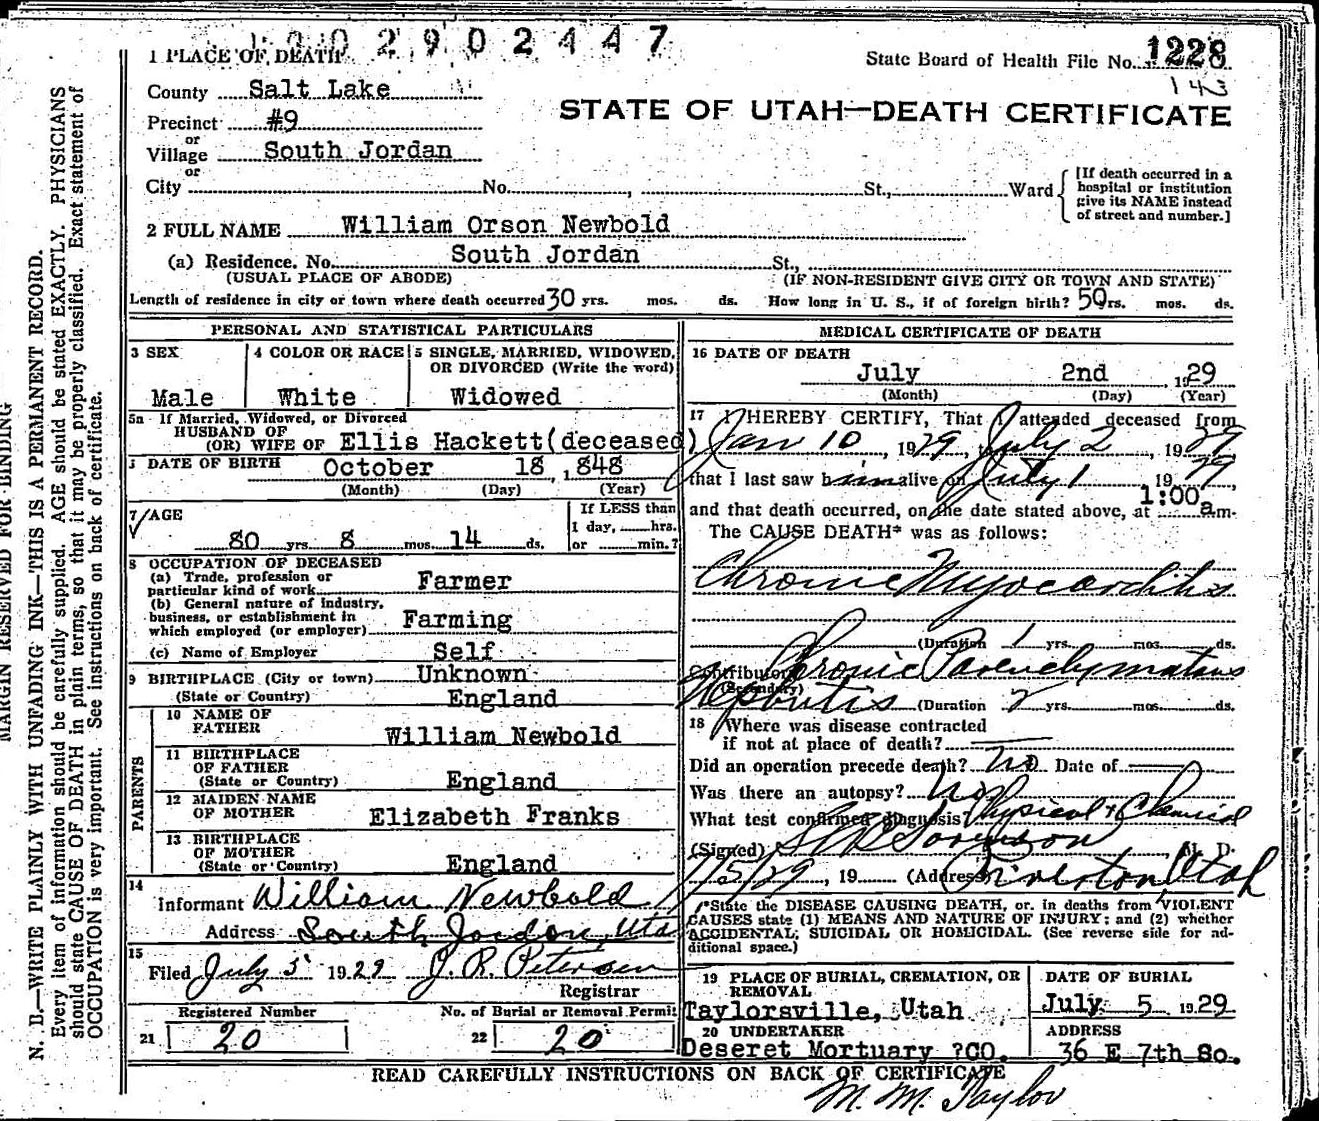 2902447
1 PLACE OF DEATH
State Board of Health File No. 1228
143
County Salt Lake
STATE OF UTAH—DEATH CERTIFICATE
Precinct #9
or
Village South Jordan
or
City No. , St., Ward
[If death occurred in a hospital or institution give its NAME instead of street and number.]
2 FULL NAME William Orson Newbold
(a) Residence. No. South Jordan St.,
(USUAL PLACE OF ABODE) (IF NON-RESIDENT GIVE CITY OR TOWN AND STATE)
Length of residence in city or town where death occurred 30 yrs. mos. ds. How long in U. S., if of foreign birth? 50 yrs. mos. ds.
PERSONAL AND STATISTICAL PARTICULARS
3 SEX
Male
4 COLOR OR RACE
White
5 SINGLE, MARRIED, WIDOWED,
OR DIVORCED (Write the word)
Widowed
5a If Married, Widowed, or Divorced
HUSBAND OF
(OR) WIFE OF Ellis Hackett(deceased)
DATE OF BIRTH October 18 ,1848
(Month) (Day) (Year)
7 AGE
80 yrs 8 mos. 14 ds.
If LESS than
1 day, hrs.
or min.?
8 OCCUPATION OF DECEASED
(a) Trade, profession or
particular kind of work Farmer
(b) General nature of industry,
business, or establishment in
which employed (or employer) Farming
(c) Name of Employer Self
9 BIRTHPLACE (City or town) Unknown
(State or Country) England
PARENTS
10 NAME OF
FATHER William Newbold
11 BIRTHPLACE
OF FATHER
(State or Country) England
12 MAIDEN NAME
OF MOTHER Elizabeth Franks
13 BIRTHPLACE
OF MOTHER
(State or Country) England
14
Informant William Newbold
Address South Jordon, Uta
15
Filed July 5 1929 J. R. Petersen
Registrar
Registered Number
21 20
No. of Burial or Removal Permit
22 20
MEDICAL CERTIFICATE OF DEATH
16 DATE OF DEATH
July 2nd , 1929
(Month) (Day) (Year)
17 I HEREBY CERTIFY, That I attended deceased from
Jan 10, 1929, July 2, 1929
that I last saw him alive on July 1 1929,
and that death occurred, on the date stated above, at 1:00 a.m.
The CAUSE DEATH* was as follows:
Chronic Myocarditis
(Duration 1 yrs. mos. ds.
Contributory Chronic Parenchymatous
(Secondary)
Nephritis (Duration 2 yrs. mos. ds.
18 Where was disease contracted
if not at place of death?
Did an operation precede death? no Date of
Was there an autopsy? no
What test confirmed diagnosis? Physical & Chemical
(Signed) Sorenson, M. D.
7/5/29, 19 (Address) Riverton, Utah
*State the DISEASE CAUSING DEATH, or. in deaths from VIOLENT
CAUSES state (1) MEANS AND NATURE OF INJURY; and (2) whether
ACCIDENTAL, SUICIDAL OR HOMICIDAL. (See reverse side for ad-
ditional space.)
19 PLACE OF BURIAL, CREMATION, OR
REMOVAL
Taylorsville, Utah
DATE OF BURIAL
July 5 1929
20 UNDERTAKER
Deseret Mortuary ?CO.
ADDRESS
36 E 7th So.
READ CAREFULLY INSTRUCTIONS ON BACK OF CERTIFICATE
M. M. Taylor
MARGIN RESERVED FOR BINDING
N. B.—WRITE PLAINLY WITH UNFADING INK—THIS IS A PERMANENT RECORD.
Every item of information should be carefully supplied. AGE should be stated EXACTLY. PHYSICIANS
should state CAUSE OF DEATH in plain terms, so that it may be properly classified. Exact statement of
OCCUPATION is very important. See instructions on back of certificate.